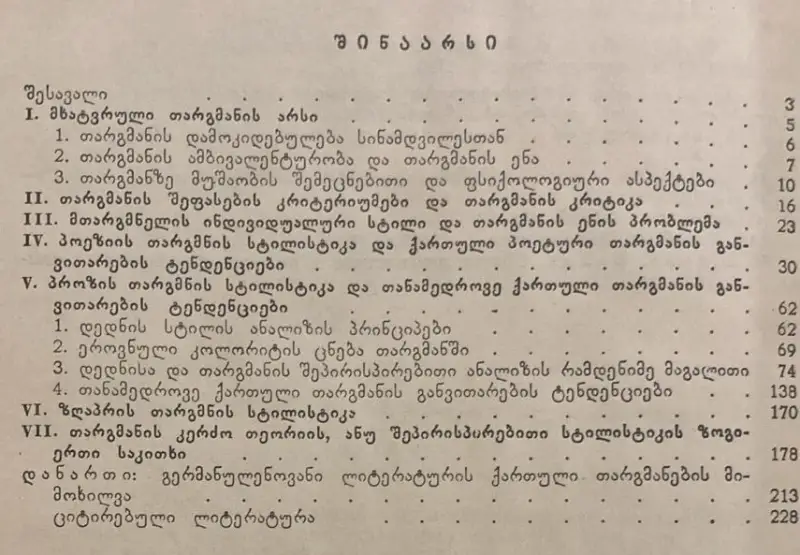 შინაარსი
შესავალი . . . . . . . . . . . . . . 3
I. მხატვრული თარგმანის არსი . . . . . . . . . 5
1. თარგმანის დამოკიდებულება სინამდვილესთან . . . . . 6
2. თარგმანის ამბივალენტურობა და თარგმანის ენა . . . . . 7
3. თარგმანზე მუშაობის შემეცნებითი და ფსიქოლოგიური ასპექტები . 10
II. თარგმანის შეფასების კრიტერიუმები და თარგმანის კრიტიკა . . . 16
III. მთარგმნელის ინდივიდუალური სტილი და თარგმანის ენის პრობლემა . 23
IV. პოეზიის თარგმნის სტილისტიკა და ქართული პოეტური თარგმანის გან-
ვითარების ტენდენციები . . . . . . . . . . 30
V. პროზის თარგმნის სტილისტიკა და თანამედროვე ქართული თარგმანის გან-
ვითარების ტენდენციები . . . . . . . . . . 62
1. დედნის სტილის ანალიზის პრინციპები . . . . . . 62
2. ეროვნული კოლორიტის ცნება თარგმანში . . . . . . 69
3. დედნისა და თარგმანის შეპირისპირებითი ანალიზის რამდენიმე მაგალითი 74
4. თანამედროვე ქართული თარგმანის განვითარების ტენდენციები . . 138
VI. ზღაპრის თარგმნის სტილისტიკა . . . . . . . . 170
VII. თარგმანის კერძო თეორიის, ანუ შეპირისპირებითი სტილისტიკის ზოგი-
ერთი საკითხი . . . . . . . . . . . . 178
დანართი: გერმანულენოვანი ლიტერატურის ქართული თარგმანების მი-
მოხილვა . . . . . . . . . . . . . 213
ციტირებული ლიტერატურა . . . . . . . . . 228